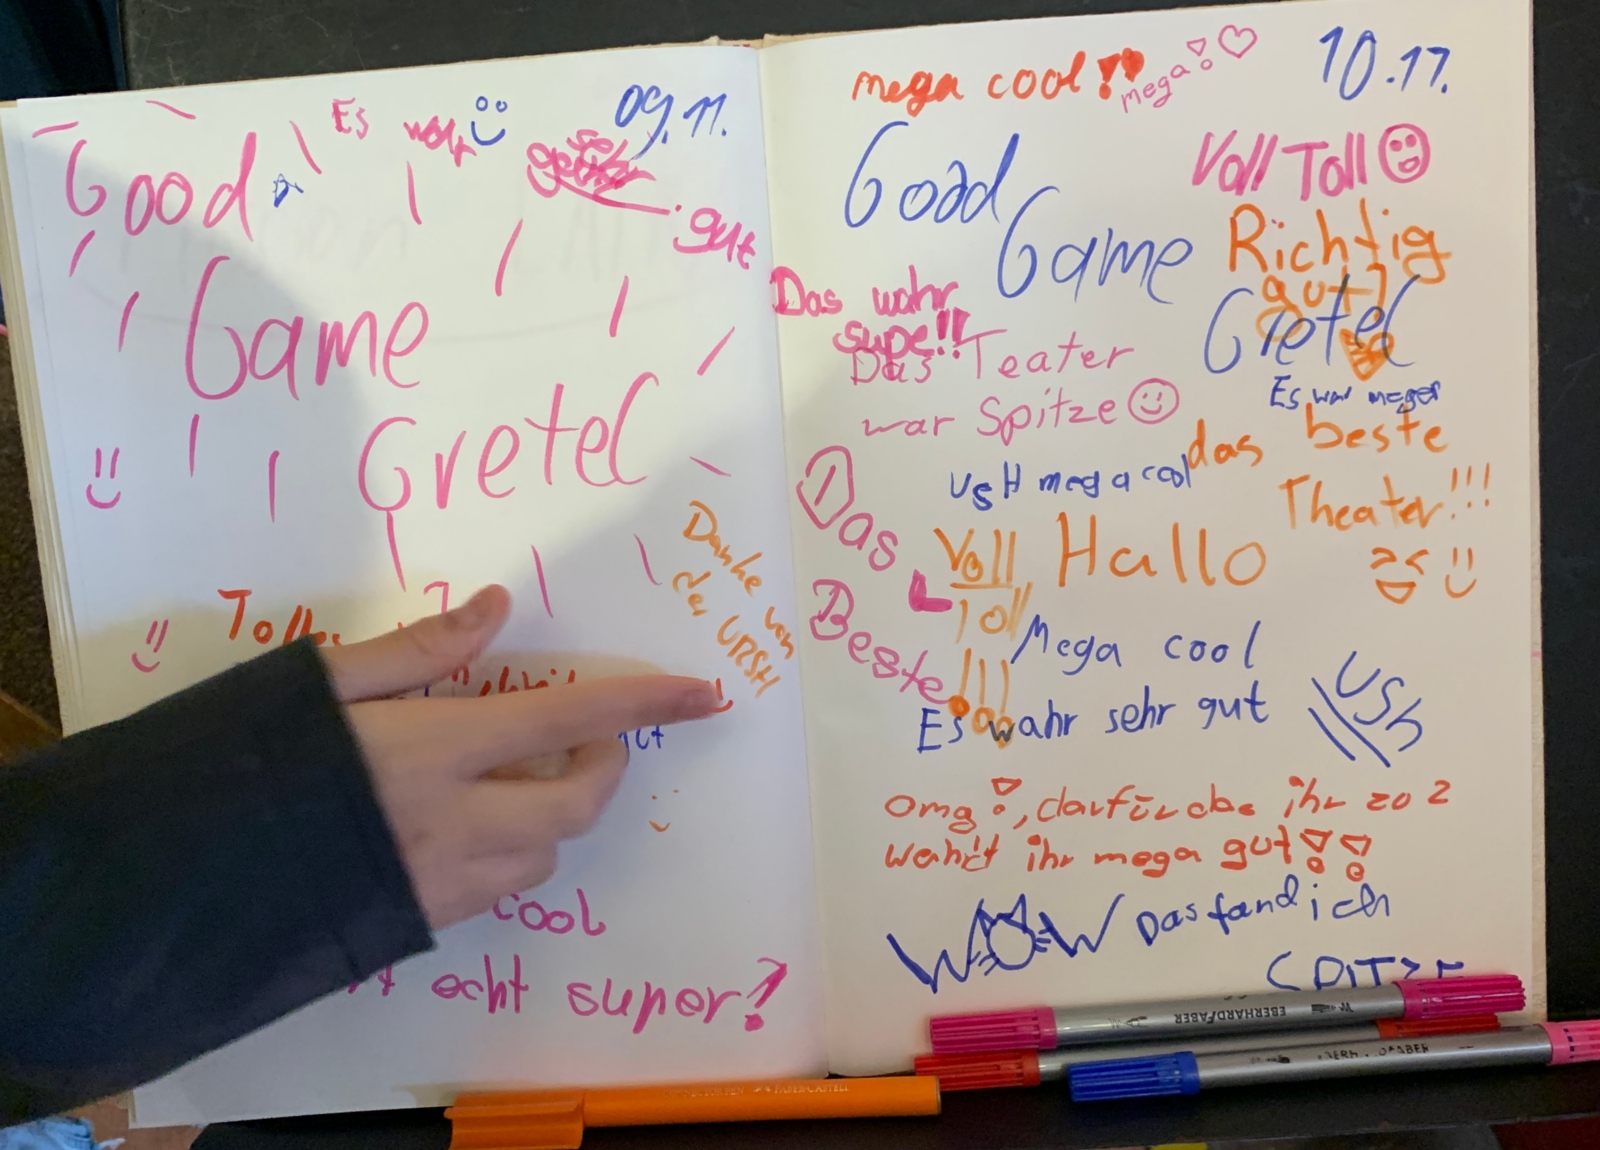 09.11.
Es war
Good
gut
Game
Gretel
Danke von
der URSH
cool
echt super!
10.11.
mega cool!!
mega!
Good
Game
Gretel
Voll Toll
Richtig
gut!
Das wahr
supe!!
Das Teater
war Spitze
Es war meger
das beste
Theater!!!
USH mega cool
Das
Beste
Voll
Toll
!!!
Hallo
Mega cool
Es wahr sehr gut
USH
omg!, dafür dbe ihr zo 2
wahrt ihr mega gut!!
WOW Das fand ich
SPITZE
EBERHARDFABER
FABER-CASTELL